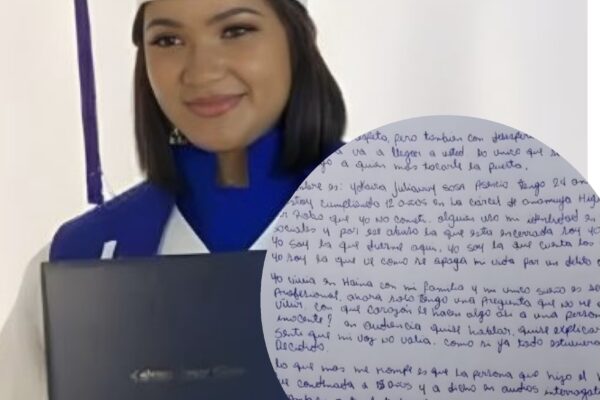 respeto, pero tambien con desespera
va a llegar a usted. lo unico que se
go a quien mas tocarle la puerta.
mbre es: yohaira Julianny sosa Asencio. tengo 24 an
stoy cumpliendo 12 años en la cárcel de anamuya Higu
or Robo que yo no cometi. alguien uso mi identidad en
sociales y por ese abuso la que esta encerrada soy yo
yo soy la que duerme aqui, yo soy la que cuenta los
yo soy la que ve como se apaga mi vida por un delito
yo vivia en Haina con mi familia y mi unico sueño es se
Profesional, ahora solo tengo una pregunta que no me d
vivir. con que corazón le hacen algo asi a una person
inocente? en audiencia quise hablar, quise explicar
senti que mi voz no valia. como si ya todo estuviera
Decidido.
lo que mas me rompe es que la persona que hizo el
ue condenada a años y a dicho en audios interrogat